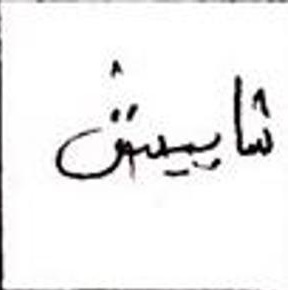 شابيش